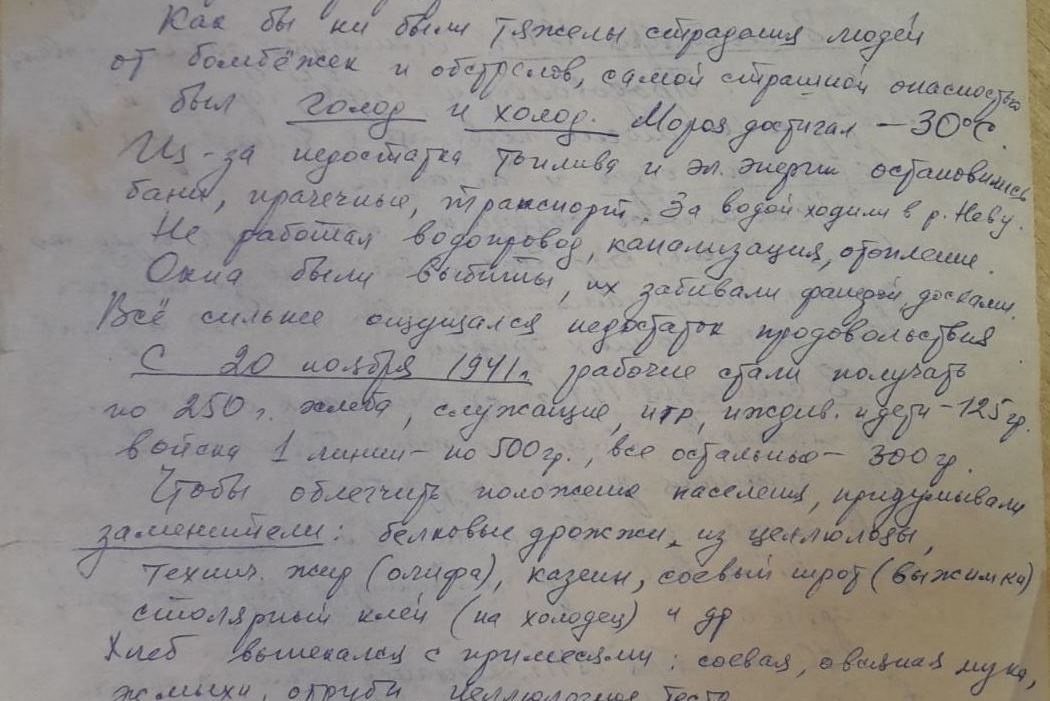 Как бы ни были тяжелы страдания людей
от бомбёжек и обстрелов, самой страшной опасностью
был голод и холод. Мороз достигал -30°С.
Из-за недостатка топлива и эл. энергии остановились
бани, прачечные, транспорт. За водой ходили в р. Неву.
Не работал водопровод, канализация, отопление.
Окна были выбиты, их забивали фанерой, досками.
Всё сильнее ощущался недостаток продовольствия
С 20 ноября 1941г. рабочие стали получать
по 250 г. хлеба, служащие, итр, иждив. и дети - 125 гр.
войска 1 линии - по 500 гр., все остальные - 300 гр.
Чтобы облегчить положение населения, придумывали
заменители: белковые дрожжи, из целлюлозы,
технич. жир (олифа), казеин, соевый шрот (выжимка)
столярный клей (на холодец) и др
Хлеб выпекался с примесями: соевая, овсяная мука,
жмыхи, отруби целлюлозное тесто